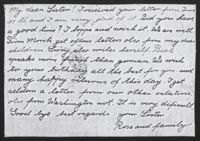 My dear Sister! I received your letter from June
11th and I am very glad of it. Did you have
a good time? I hope and wish it. We are well.
From Mosch get often letters also from my dear
children. Living also writes herself. But
speaks more French than german. We wish
for your birthday all the best for you and
many happy returns of this day. I get
seldom a letter from our other relatives,
also from Washington not. It is very difficult
Good bye best regards your Sister
Rosa and family